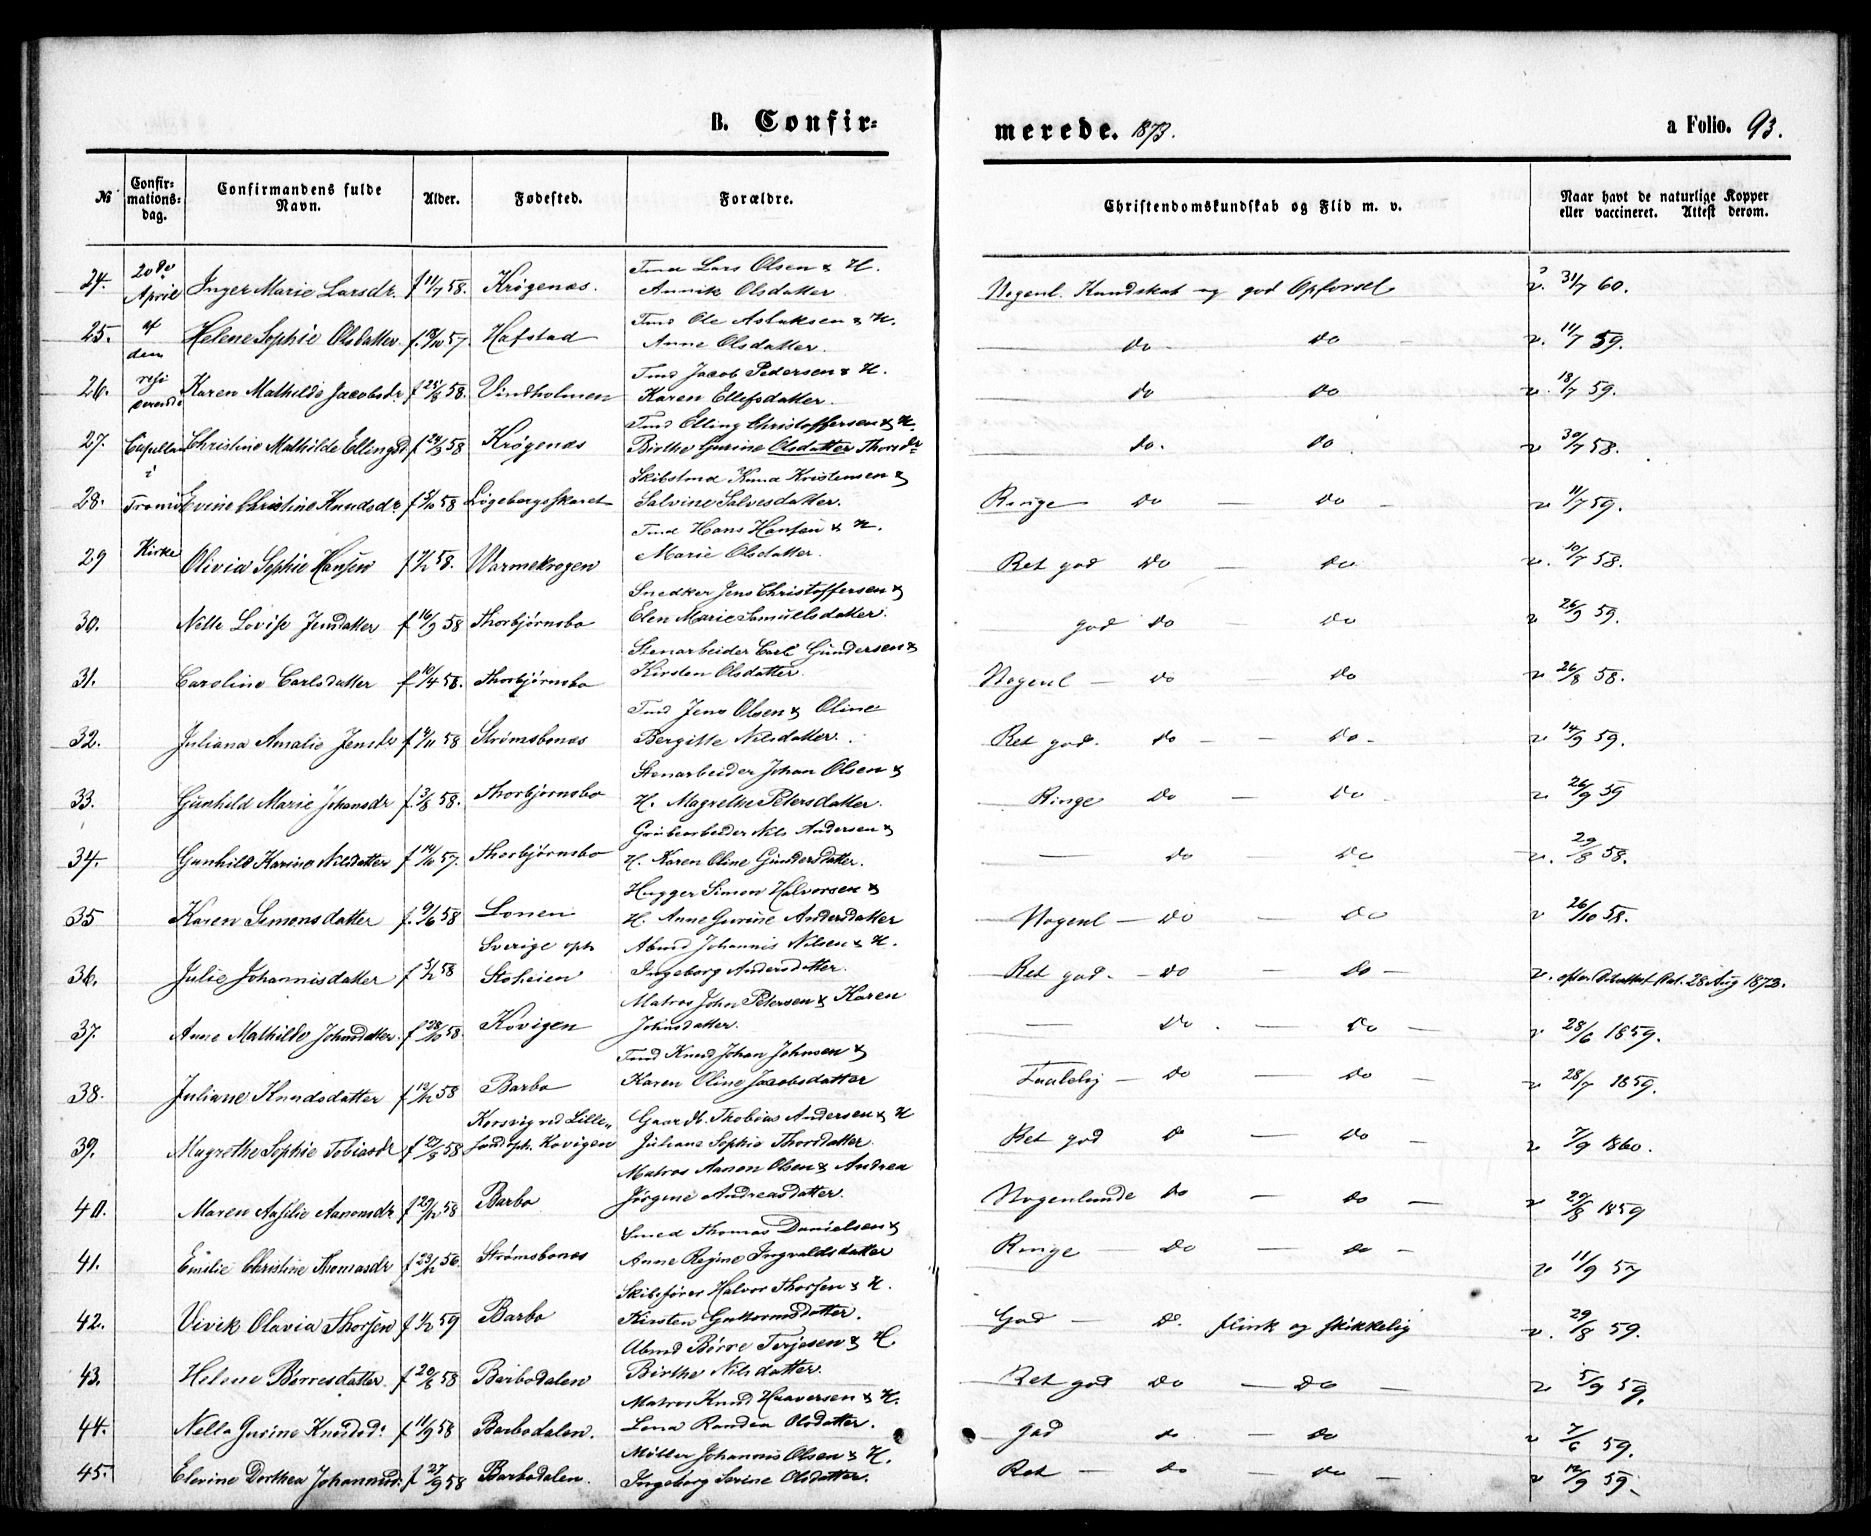 B. Confir-
merede. 1873.
a Folio. 93.
№ Confir-mations-dag. Confirmandens fulde Navn. Alder. Fødested. Forældre. Christendomskundskab og Flid m. v. Naar havt de naturlige Kopper eller vaccineret. Attest derom.
20de April af dem Capellan i Tromø Kirke
Tmd Lars Olsen & H.
24. Inger Marie Larsdr. f 11/7 58. Krøgenæs. Annik Olsdatter Nogenl. Kundskab og god Opførsel v. 31/7 60.
Tmd Ole Aslaksen & H.
25. Helene Sophie Olsdatter f. 57. Hafstad Anne Olsdatter. do do v. 11/7 59.
Tmd Jacob Pedersen & H.
26. Karen Mathilde Jacobsdr f 58. Vindholmen Karen Ellefsdatter. do do v. 18/7 59.
Tmd Elling Christoffersen & H.
27. Christine Mathilde Ellingsd f 58 Krøgenæs Birthe Gurine Olsdatter Thorsdr do. do v 30/7 58.
Skibstmd Knud Kristensen &
28. Evine Christine Knudsdr f 58 Løgebergsskaret Salvine Salvesdatter. Ringe do do v 11/7 59.
Tmd Hans Hansen & H.
29 Olivia Sophie Hansen f 58. Warmekrogen Marie Olsdatter. Ret god do do v. 10/7 58.
Snedker Jens Christoffersen &
30. Nelle Lovise Jensdatter f 16/9 58 Thorbjørnsbo Elen Marie Samuelsdatter. god do do v 26/9 59.
Stenarbeider Carl Gundersen &
31. Caroline Carlsdatter f 10/4 58. Thorbjørnsbo Kirsten Olsdatter. Nogenl do do v 26/8 58.
Tmd Jens Olsen & Oline
32. Juliana Amalie Jensdr f 58 Strømsbonæs Bergitte Nilsdatter. Ret god. do do v 14/9 59.
Stenarbeider Johan Olsen &
33. Gunhild Marie Johansdr f. 3/8 58. Thorbjørnsbo H. Magrethe Petersdatter. Ringe do do v 26/9 59
Grubearbeider Nils Andersen &
34. Gunhild Karine Nilsdatter f 14/10 57. Thorbjørnsbo H. Karen Oline Gundersdatter. do do v. 29/8 58.
Hugger Simon Halvorsen &
35 Karen Simonsdatter f. 9/6 58 Lonen H. Anne Gurine Andersdatter Nogenl do do v 26/10 58.
Sverige oph Abmd Johannis Nilsen & H.
36. Julie Johannisdatter f 5/12 58 Stoheien Ingeborg Andersdatter. Ret god. do do v. 28 Aug 1873.
Matros John Petersen & Karen
37. Anne Mathilde Johnsdatter. f 28/10 58. Kovigen Johnsdatter. do do v 28/6 1859.
Tmd Knud Johan Johnsen &
38. Juliane Knudsdatter f 12/12 58 Barbo Karen Oline Jacobsdatter Taalelig do do v 28/7 1859.
Korsvig ved Lille- Gaardb. Thobias Andersen & H
39. Magrethe Sophie Tobiasdr f 27/8 58 sund oph. Kovigen Juliane Sophie Thorsdatter. Ret god do do v 7/9 1860.
Matros Aanon Olsen & Andrea
40. Maren Aasilie Aanonsdr f 29/12 58 Barbo Jørgine Andreasdatter. Nogenlunde do do v 29/8 1859
Smed Thomas Danielsen &
41. Emilie Christine Thomasdr f 23/12 56. Strømsbonæs Anne Regine Ingvaldsdatter Ringe do do v 11/9 57
Skibsfører Halvor Thorsen & H.
42. Vivek Olavia Thorsen f 1/2 59 Barbo Kirsten Guttormsdatter. God do. flink og skikkelig v. 29/8 59.
Abmd Børre Terjesen & H
43. Helene Børresdatter. f 20/8 58 Barbodalen Birthe Nilsdatter. Ret god do do v 5/9 59.
Matros Knud Haaversen & H.
44. Nella Gurine Knudsd. f 11/9 58 Barbodalen. Lena Randea Olsdatter. god do do v 7/6 59.
Møller Johannis Olsen & H.
45. Elevine Dorthea Johannisdr f 27/9 58 Barbodalen. Ingeborg Serine Olsdatter. Ret do do v 12/9 59.